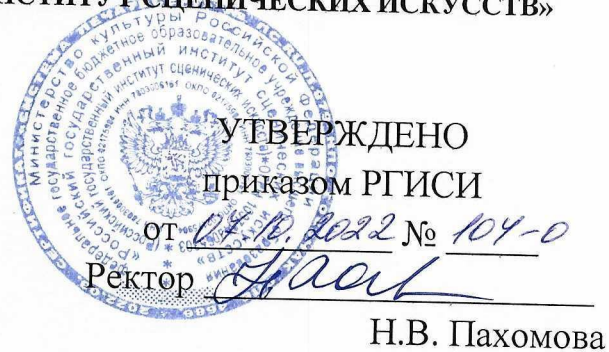 ИНСТИТУТ СЦЕНИЧЕСКИХ ИСКУССТВ»
УТВЕРЖДЕНО
приказом РГИСИ
от 07.10.2022 № 104-О
Ректор
Н.В. Пахомова
Министерство культуры Российской Федерации
Федеральное государственное бюджетное образовательное учреждение
«Российский государственный институт сценических искусств»